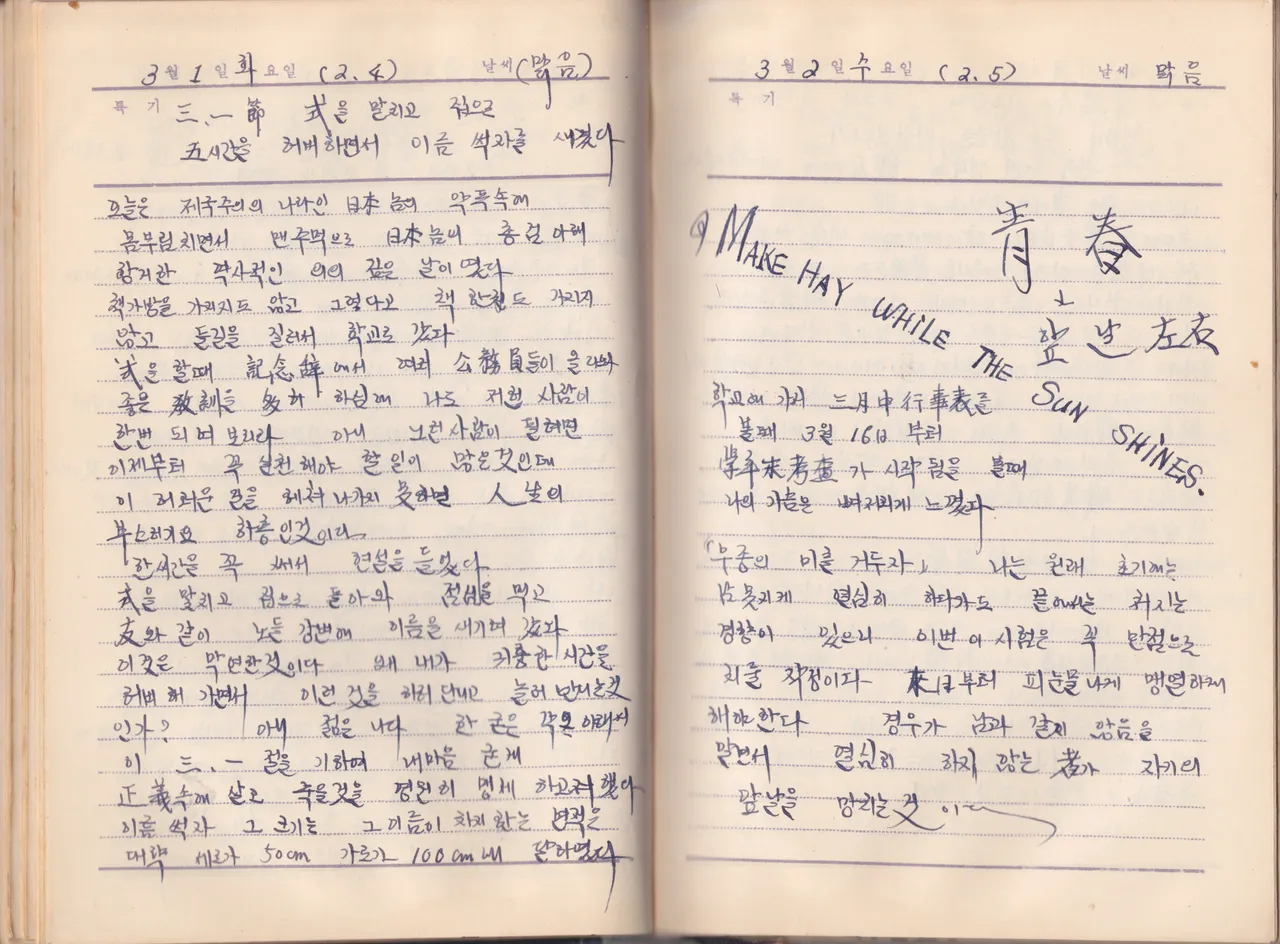 3월 1일 화요일 (2.4) 날씨 (맑음)
특기 三.一節 式을 말치고 집으로
五시간을 허비하면서 이름 석자를 새겼다
오늘은 제국주의의 나라인 日本놈의 악폭속에
몸부림치면서 맨주먹으로 日本놈의 총검아래
항거한 역사적인 의의 깊은 날이 였다
책가방을 가지지도 않고 그렇다고 책 한권도 가지지
않고 들길을 질러서 학교로 갔다
式을 할때 記念辞에서 여러 公務員들이 올라와
좋은 敎訓을 多히 하실때 나도 저런 사람이
한번 되여 보리라 아니 그런사람이 될려면
이제부터 꼭 실천해야 할 일이 많은것인데
이 어려운 길을 헤쳐 나가지 못하면 人生의
부스러기요 하층인것이다
한시간을 꼭 써서 연설을 들었다
式을 말치고 집으로 돌아와 점심을 먹고
友와 같이 노들 강변에 이름을 새기려 갔다
이것은 막연한것이다 왜 내가 귀중한 시간을
허비해 가면서 이런 것을 하러 단니고 놀러 단니는것
인가? 아니 젊은 나다 한 굳은 각오 아래서
이 三.一절을 기하여 내마음 굳게
正義속에 살고 죽을것을 영원히 맹세 하고저 했다
이름 석자 그 크기는 그 이름이 차지 하는 면적은
대략 세로가 50cm 가로가 100cm에 달하였다
3월 2일 수요일 (2.5) 날씨 맑음
특기
MAKE HAY WHILE THE SUN SHINES.
青春
그
앞날 左右
학교에 가서 三月中行事表를
볼때 3월 16日 부터
學年末考査가 시작 됨을 볼때
나의 가슴은 느꼈다
「우종의 미를 거두자」 나는 원래 초기에는
남 못지게 열심히 하다가도 끝에는 쳐지는
경향이 있으니 이번 이 시험은 꼭 만점으로
치룰 작정이다 来日부터 피눈물나게 맹열하게
해야한다 경우가 남과 같지 않음을
알면서 열심히 하지 않는 者가 자기의
앞날을 망치는것 이다